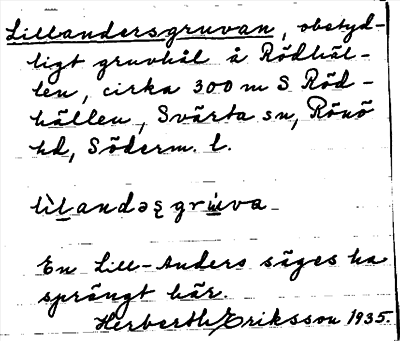 Lillandersgruvan, obetyd-
ligt gruvhål å Rödhäl-
len, cirka 300 m S Röd-
hällen, Svärta sn, Rönö
hd, Söderm. l.
En Lill-Anders säges ha
sprängt här.
Herberth Eriksson 1935.